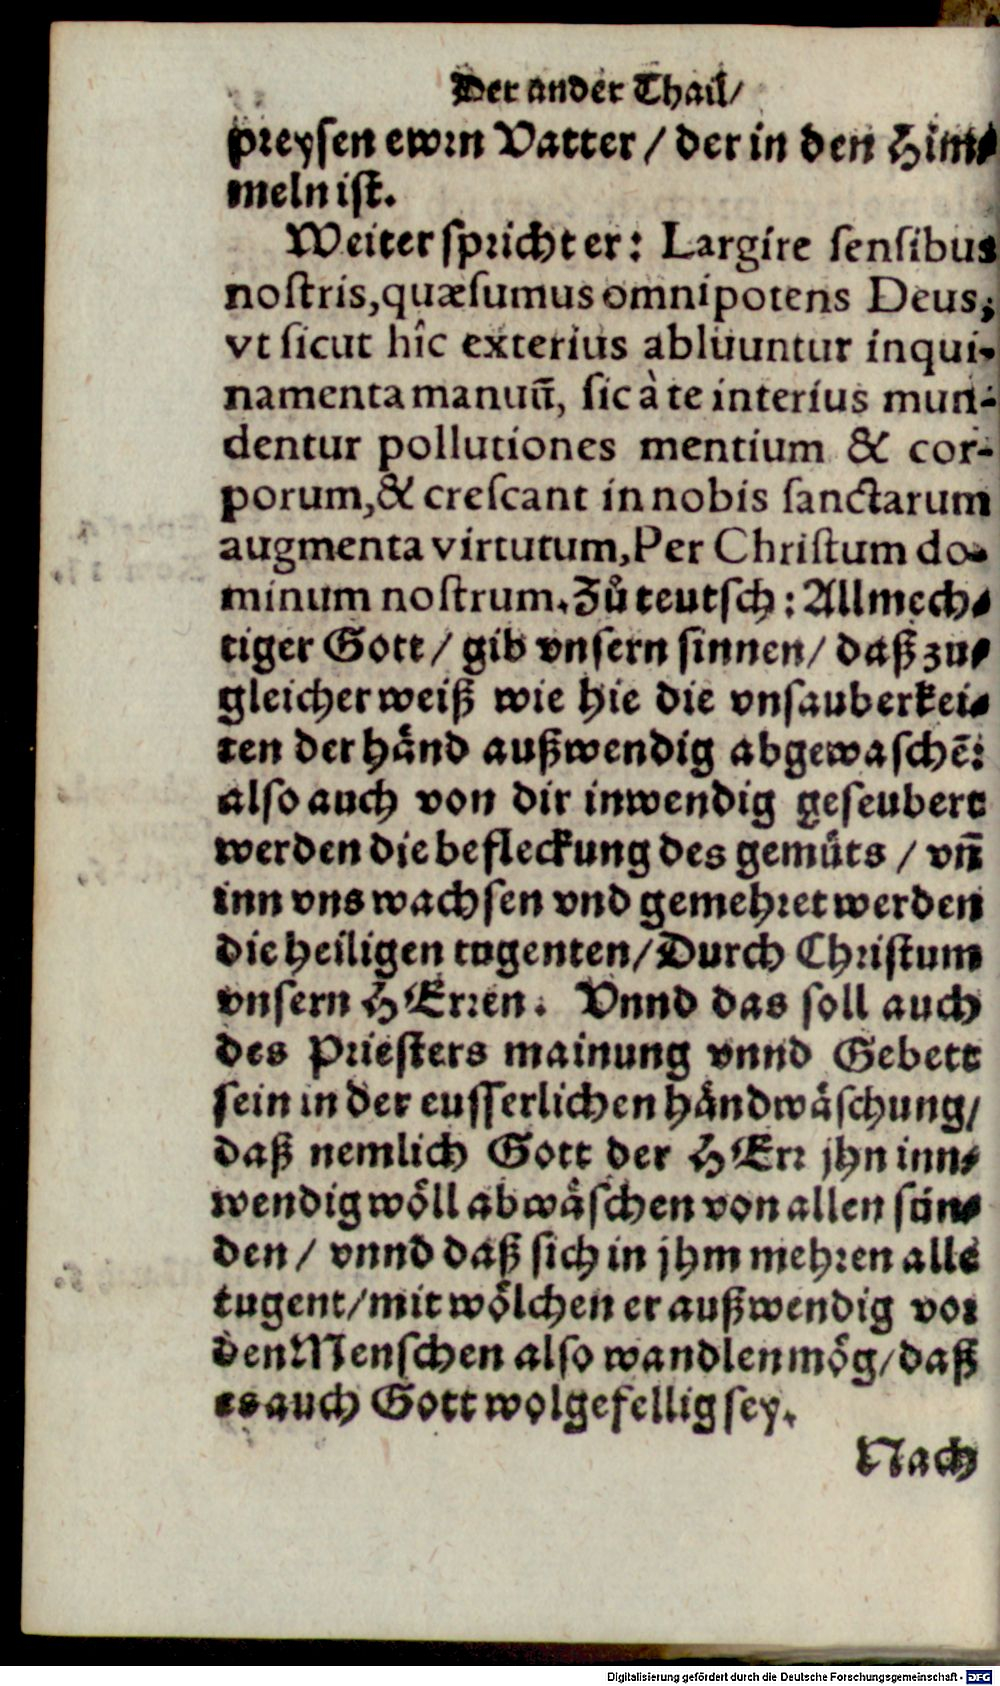 Der ander Thail/
preysen ewrn Vatter / der in den Him⸗
meln ist.
Weiter spricht er: Largire sensibus
nostris, quæsumus omnipotens Deus,
vt sicut hîc exterius abluuntur inqui-
namenta manuũ, sic à te interius mun-
dentur pollutiones mentium & cor-
porum, & crescant in nobis sanctarum
augmenta virtutum, Per Christum do-
minum nostrum. Zů teutsch: Allmech⸗
tiger Gott / gib vnsern sinnen / daß zu⸗
gleicher weiß wie hie die vnsauberkei⸗
ten der händ außwendig abgewaschẽ:
also auch von dir inwendig geseubert
werden die befleckung des gemüts / vñ
inn vns wachsen vnd gemehret werden
die heiligen tugenten / Durch Christum
vnsern HErren. Vnnd das soll auch
des Priesters mainung vnnd Gebett
sein in der eusserlichen händwäschung /
daß nemlich Gott der HErr jhn inn⸗
wendig wöll abwäschen von allen sün⸗
den / vnnd daß sich in jhm mehren alle
tugent / mit wölchen er außwendig vor
den Menschen also wandlen mög / daß
es auch Gott wolgefellig sey.
Nach
Digitalisierung gefördert durch die Deutsche Forschungsgemeinschaft - DFG